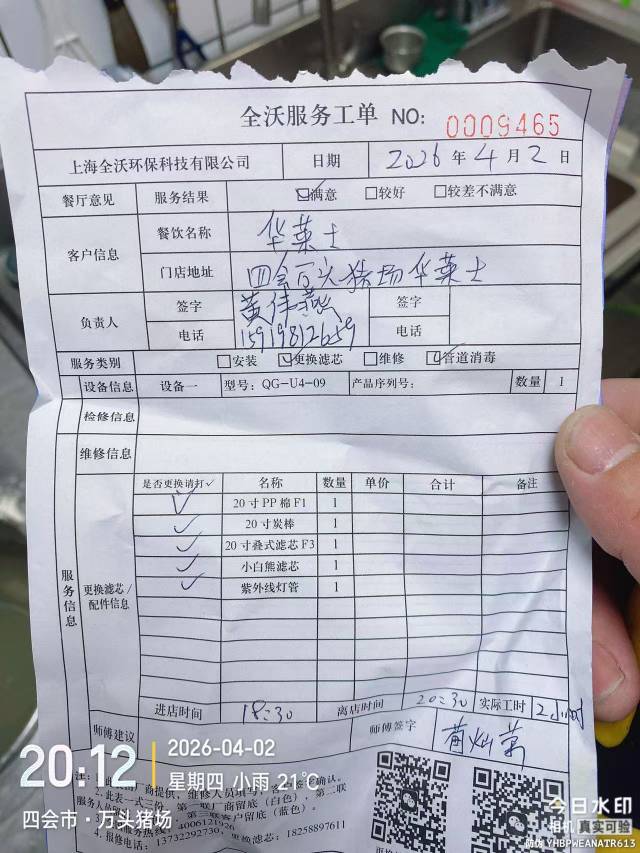 全沃服务工单 NO: 0009465
上海全沃环保科技有限公司 日期 2026 年 4 月 2 日
餐厅意见 服务结果 ☑满意 □较好 □较差不满意
客户信息 餐饮名称 华莱士
门店地址 四会万头猪场华莱士
负责人 签字 黄佳燕 签字
电话 15919812659 电话
服务类别 □安装 ☑更换滤芯 □维修 ☑管道消毒
设备信息 设备一 型号: QG-U4-09 产品序列号: 数量 1
检修信息
维修信息
服务信息
更换滤芯/配件信息
是否更换请打✓ 名称 数量 单价 合计 备注
✓ 20寸PP棉F1 1
✓ 20寸炭棒 1
✓ 20寸叠式滤芯F3 1
✓ 小白熊滤芯 1
✓ 紫外线灯管 1
进店时间 18:30 离店时间 20:30 实际工时 2小时
师傅建议 师傅签字
注:
2.此表一式三份,第一联厂商留底(白色),第二联
第三联客户留底(蓝色)。
服务热线: 4006121926
4.报修电话: 13732292730, 更换滤芯: 18258897611
20:12
2026-04-02
星期四 小雨 21℃
四会市·万头猪场
今日水印
相机 真实可验
防伪 YHBPWEANATR613